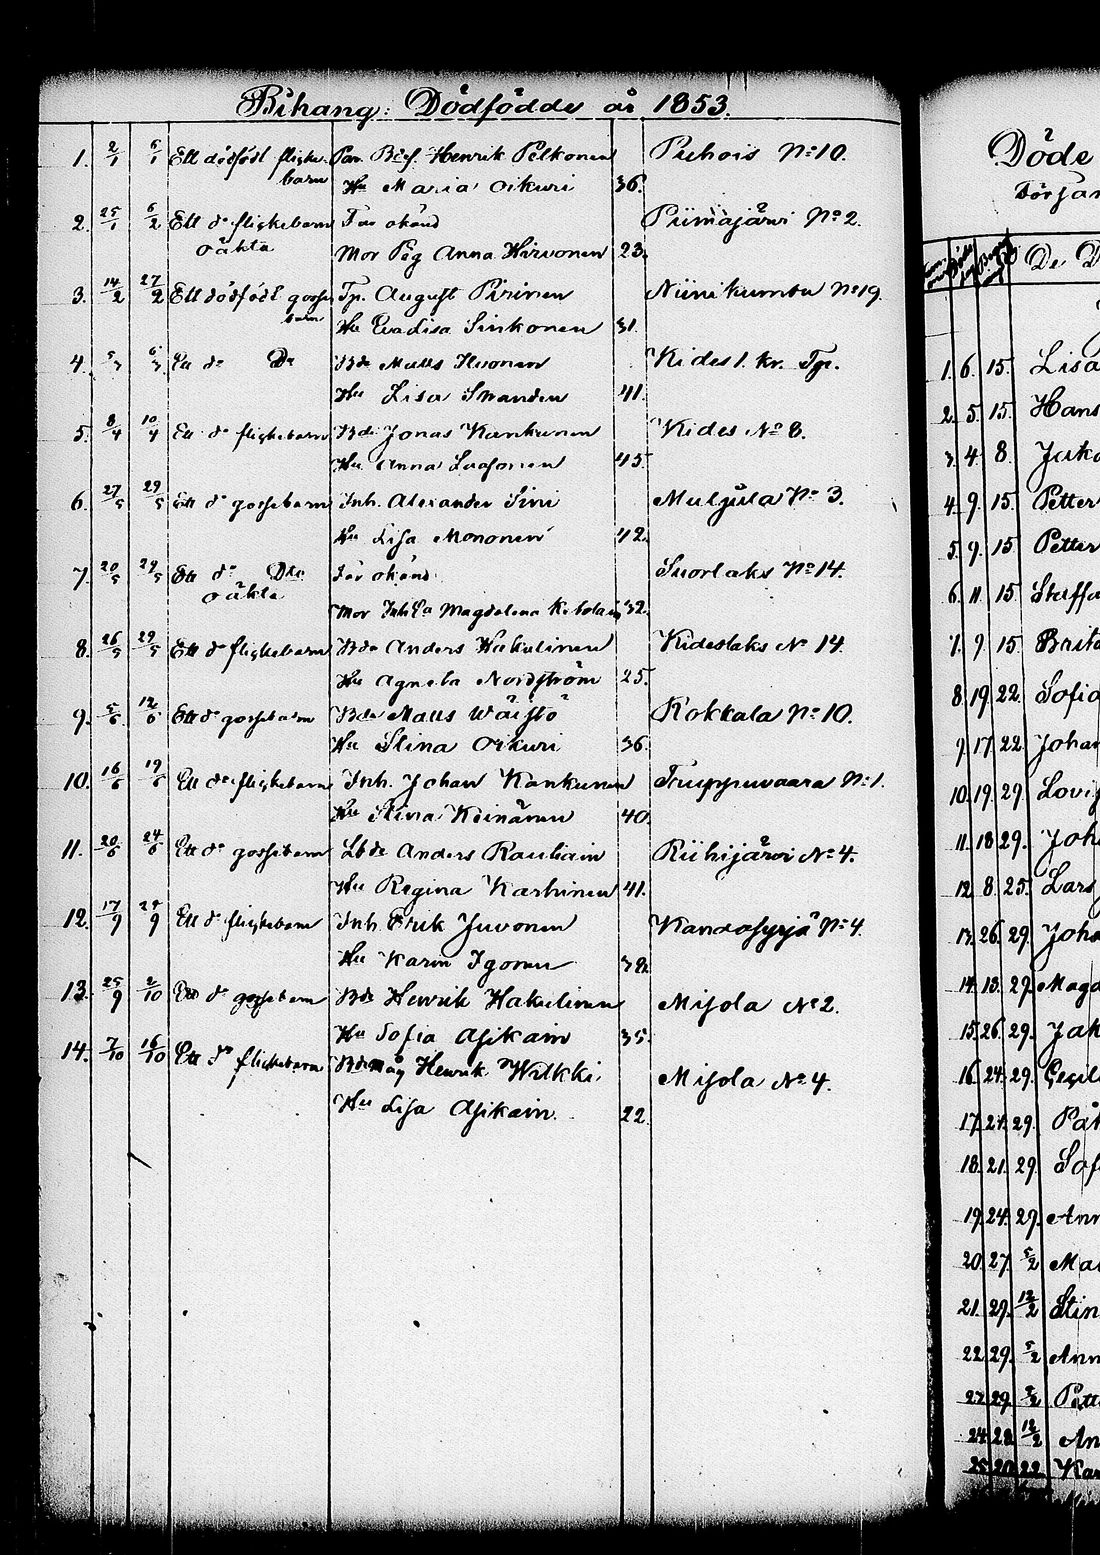 Bihang: Dödfödde år 1853.
1. 2/1 6/1 Ett dödfödt flicke- Henrik Pelkonen Puhois No 10.
barn Hu Maria Oikuri 36.
2. 25/1 6/2 Ett do flickebarn Far okänd Piimäjärvi No 2.
oäkta Mor Pig Anna Hirvonen 23.
3. 14/2 27/2 Ett dödfödt gosse Tp. August Pirinen Niinikumbu No 19.
barn Hu Eva Lisa Sinkonen 31.
4. Ett do Do Bde Matts Ikonen Kides 1. kr. Tp.
Hu Lisa Swanden 41.
5. 8/4 10/4 Ett do flickebarn Bde Jonas Kankunen Kides No 8.
Hu Anna 45.
6. 27/5 29/5 Ett do gossebarn Inh. Alexander Sini Muljula No 3.
Hu Lisa Mononen 42.
7. 20/5 29/5 Ett do Dto Far okänd Suorlaks No 14.
oäkta Mor Magdalena 32.
8. 26/5 29/5 Ett do flickebarn Bde Anders Hakulinen Kideslaks No 14.
Hu Agneta Nordström 25.
9. 5/6 12/6 Ett do gossebarn Bde Matts Kokkala No 10.
Hu Stina Oikuri 36.
10. 16/6 19/6 Ett do flickebarn Inh. Johan Kankunen Truppuvaara No 1.
Hu Stina Keinänen 40.
11. 20/6 24/6 Ett do gossebarn Lbde Anders Rautiain Riihijärvi No 4.
Hu Regina Karhinen 41.
12. 17/9 24/9 Ett do flickebarn Inh. Erik Juvonen No 4.
Hu Karin Igonen 38.
13. 25/9 2/10 Ett do gossebarn Bde Henrik Hakulinen Misola No 2.
Hu Sofia Asikain 35.
14. 7/10 16/10 Ett do flickebarn Bdemåg Henrik Wilkki Misola No 4.
Hu Lisa Asikain 22.
Döde
Börjar
De D
1. 6. 15. Lisa
2. 5. 15. Hans
3. 4. 8. Juka
4. 9. 15. Petter
5. 9. 15 Petter
6. 11. 15 Staffa
7. 9 15. Brita
8. 19. 22. Sofia
9. 17. 22. Johan
10. 19. 29. Lovi
11. 18 29. Joh
12. 8. 25. Lars
13. 26. 29. Joha
14. 13. 29. Magd
15. 26. 29. Jak
16. 24. 29. Cecili
17. 24. 29. Pål
18. 21. 29. Sof
19. 24. 29. Ann
20. 27. 5/2 Ma
21. 29. 12/2 Stin
22. 29. 5/2 Ann
29. Pett
24. 28. 12/2 An
25. 20. 22. Kar